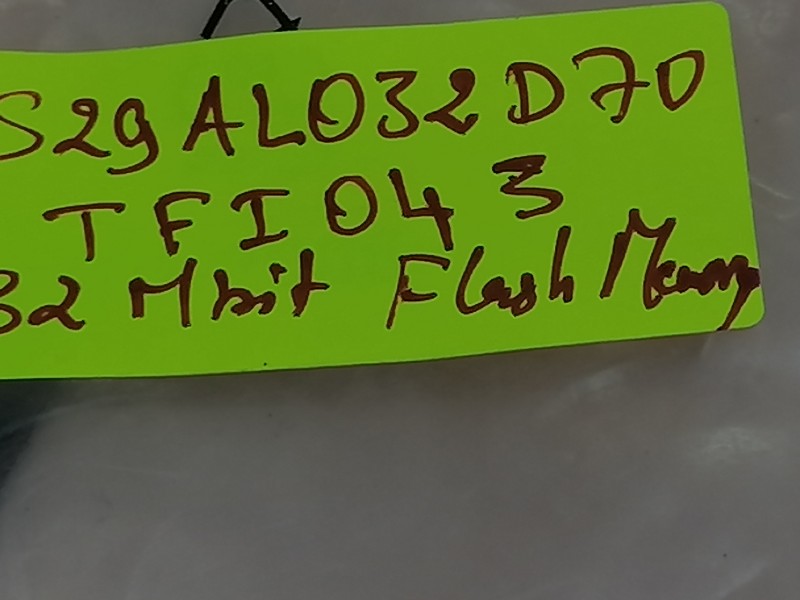 S29AL032D70
TFI043
32 Mbit Flash Memory